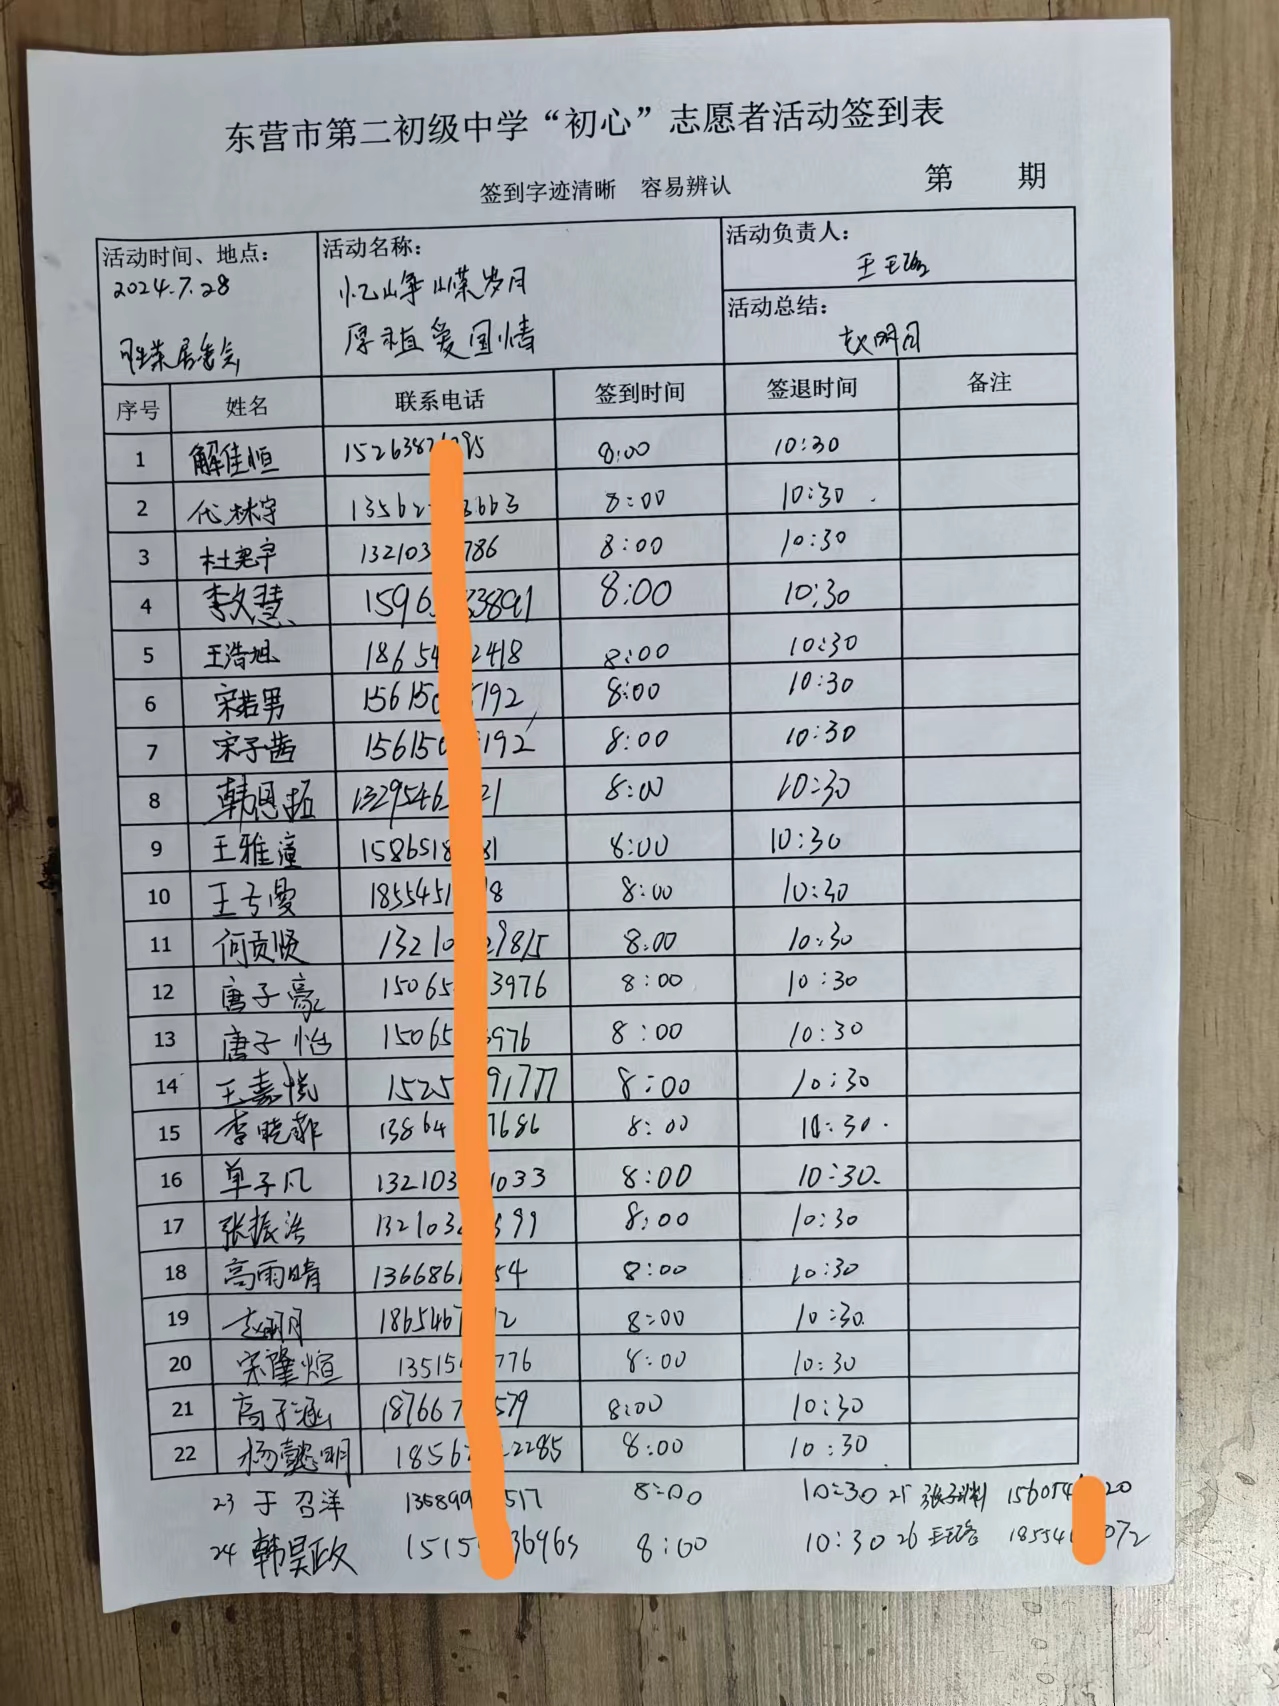 东营市第二初级中学“初心”志愿者活动签到表
签到字迹清晰 容易辨认 第 期
活动时间、地点: 活动名称: 活动负责人:
2024.7.28 忆峥嵘岁月 王璐
居委会 厚植爱国情 活动总结:
赵明月
序号 姓名 联系电话 签到时间 签退时间 备注
1 解佳恒 1526382 95 8:00 10:30
2 代林宇 13562 3663 8:00 10:30
3 杜奕宇 132103 786 8:00 10:30
4 李文慧 1596 33891 8:00 10:30
5 王浩旭 18654 2418 8:00 10:30
6 宋若男 156150 192 8:00 10:30
7 宋子茜 156150 192 8:00 10:30
8 韩恩拓 13295462 21 8:00 10:30
9 王雅潼 1586518 81 8:00 10:30
10 王亏曼 1855451 8 8:00 10:30
11 何贡贤 13210 29815 8:00 10:30
12 唐子豪 15065 3976 8:00 10:30
13 唐子怡 15065 3976 8:00 10:30
14 王嘉悦 1525 91777 8:00 10:30
15 李晓菲 13864 7686 8:00 10:30
16 单子凡 132103 1033 8:00 10:30
17 张振浩 132103 399 8:00 10:30
18 高雨晴 1366861 54 8:00 10:30
19 赵明月 1865467 2 8:00 10:30
20 宋肇煊 13515 776 8:00 10:30
21 高子涵 187667 579 8:00 10:30
22 杨懿明 1856 2285 8:00 10:30
23 于召洋 135899 517 8:00 10:30 25 张子 156054 20
24 韩昊政 1515 36963 8:00 10:30 26 王璐 18554 072